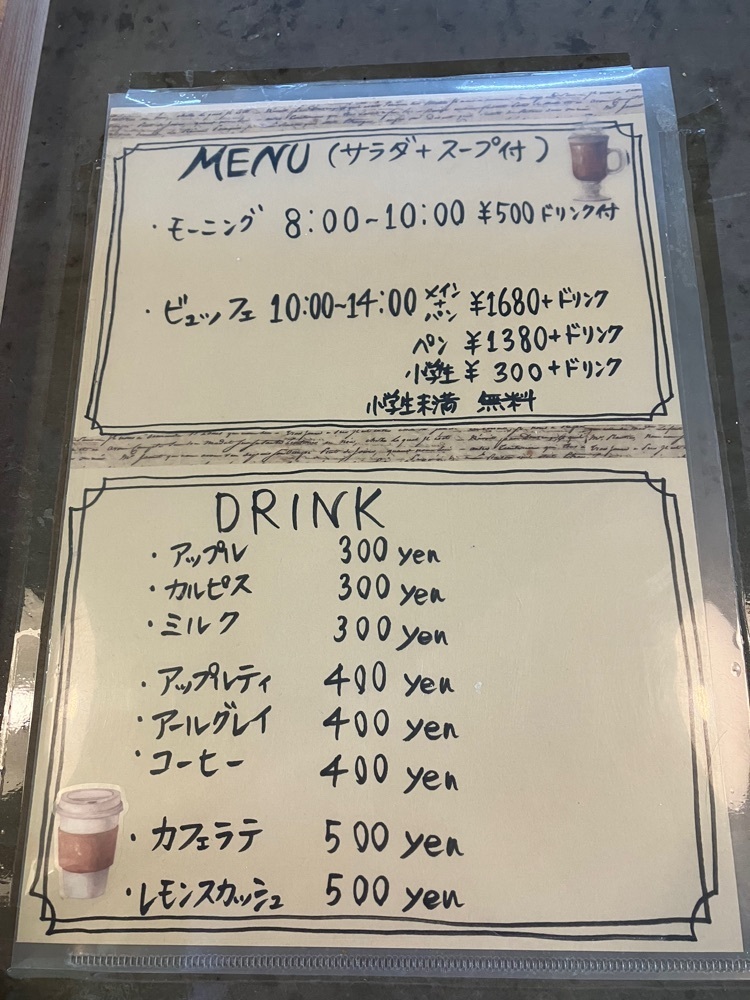 MENU (サラダ+スープ付)
・モーニング 8:00~10:00 ¥500ドリンク付
・ビュッフェ 10:00~14:00 メイン+パン ¥1680+ドリンク
パン ¥1380+ドリンク
小学生 ¥300+ドリンク
小学生未満 無料
DRINK
・アップル 300 yen
・カルピス 300 yen
・ミルク 300 yen
・アップルティ 400 yen
・アールグレイ 400 yen
・コーヒー 400 yen
・カフェラテ 500 yen
・レモンスカッシュ 500 yen